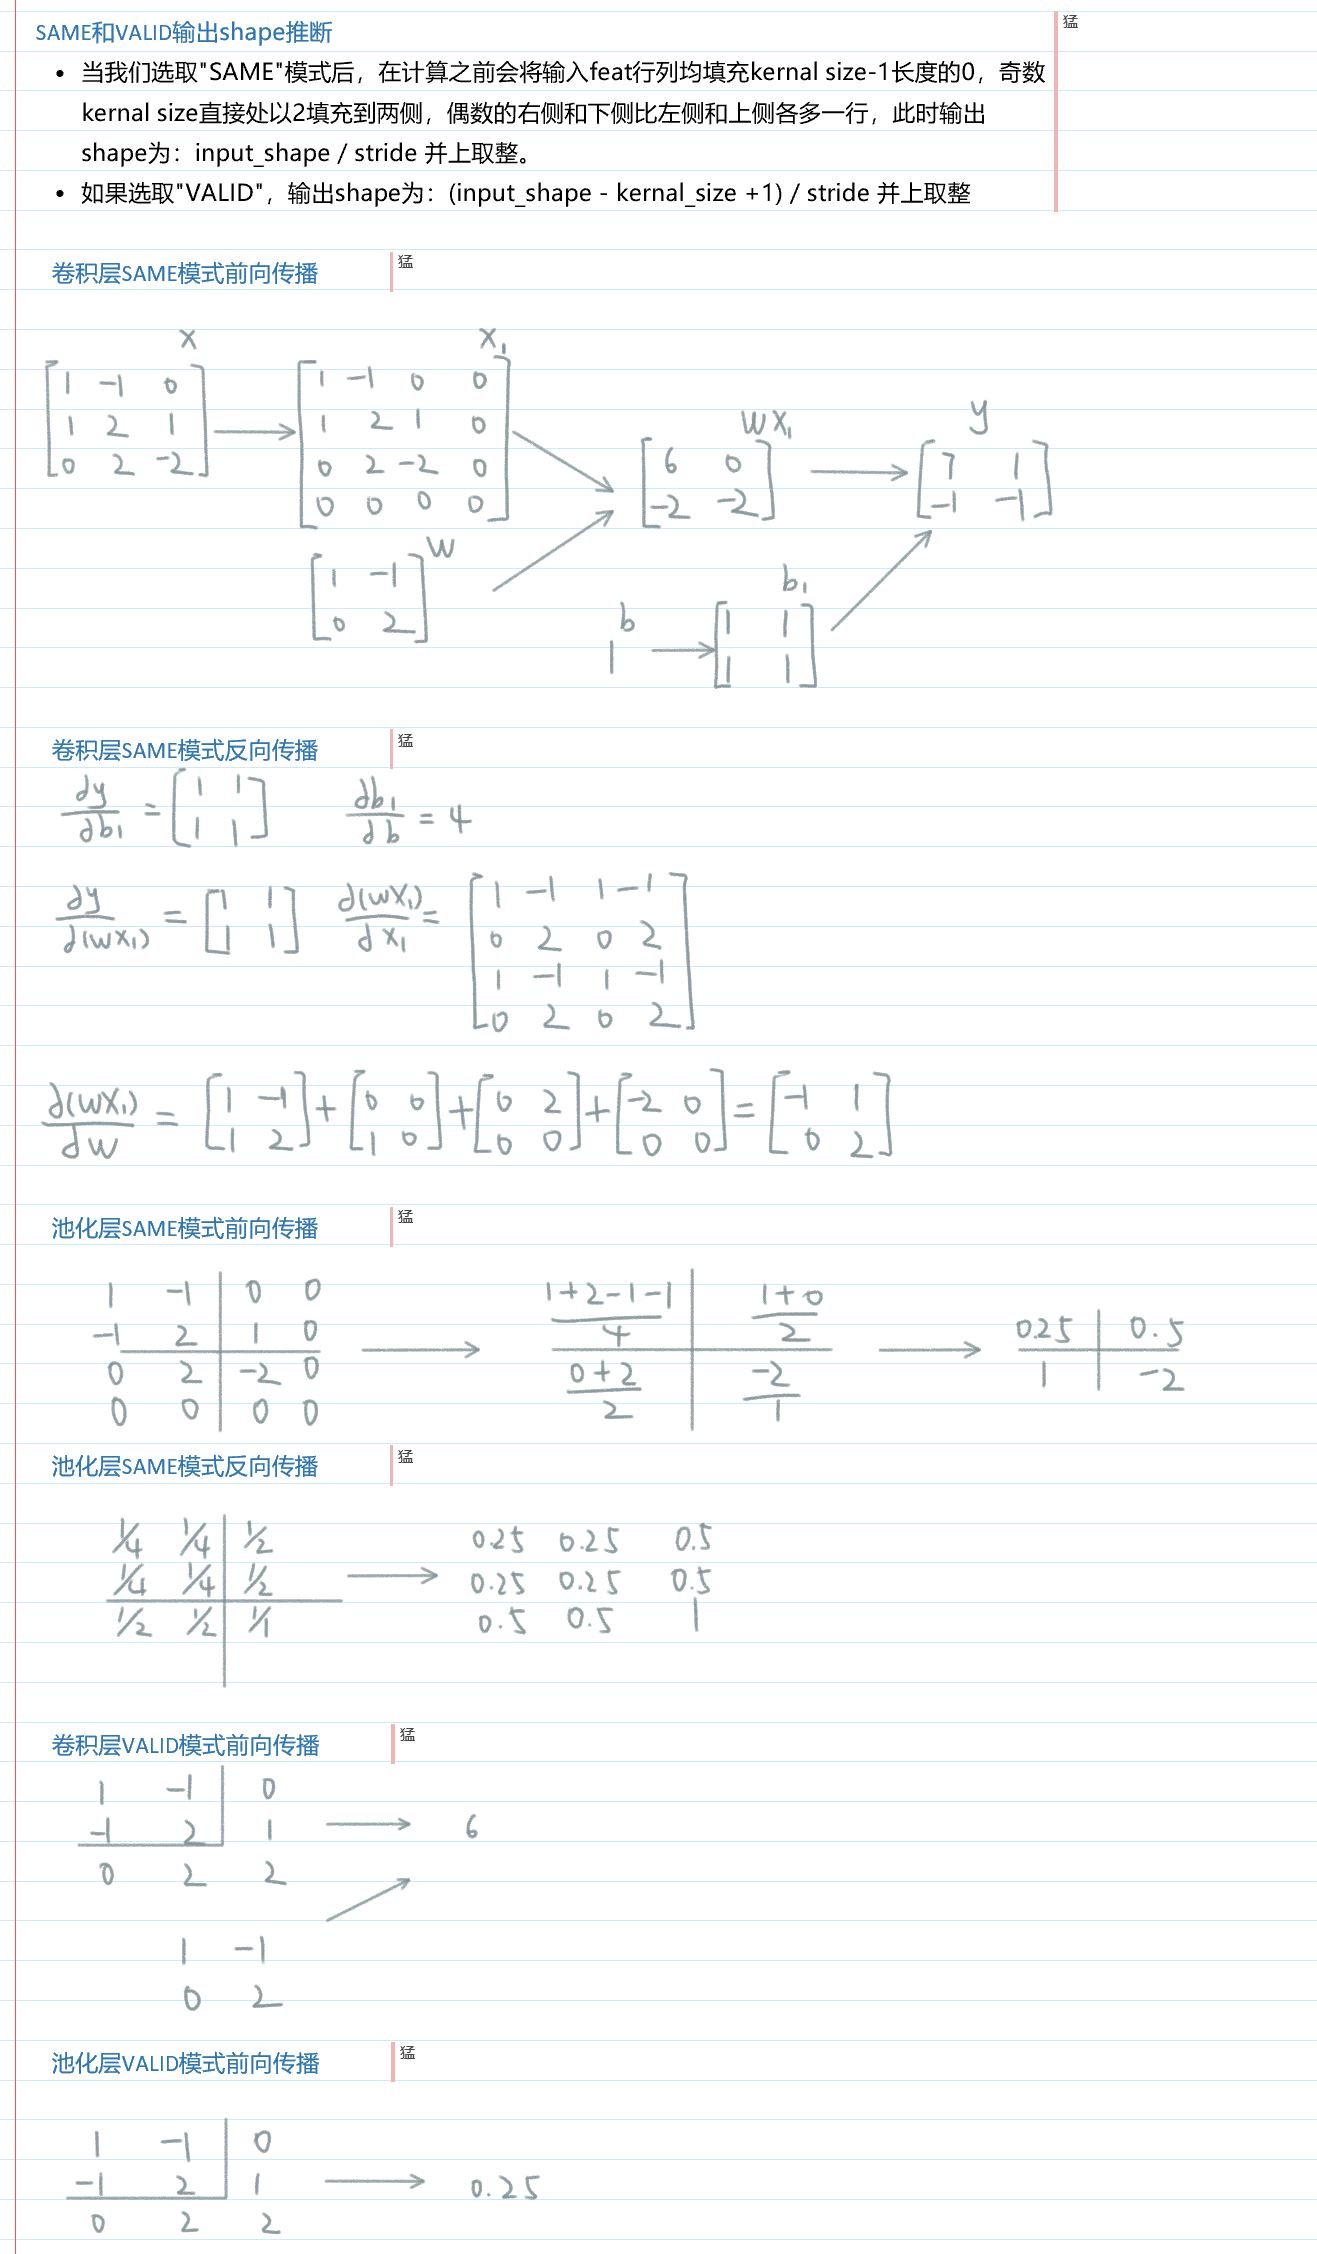 SAME和VALID输出shape推断
猛
• 当我们选取"SAME"模式后，在计算之前会将输入feat行列均填充kernal size-1长度的0，奇数
kernal size直接处以2填充到两侧，偶数的右侧和下侧比左侧和上侧各多一行，此时输出
shape为：input_shape / stride 并上取整。
• 如果选取"VALID"，输出shape为：(input_shape - kernal_size +1) / stride 并上取整
卷积层SAME模式前向传播
猛
x
1 -1 0
1 2 1
0 2 -2
x₁
1 -1 0 0
1 2 1 0
0 2 -2 0
0 0 0 0
w
1 -1
0 2
wx₁
6 0
-2 -2
y
7 1
-1 -1
b
1
b₁
1 1
1 1
卷积层SAME模式反向传播
猛
∂y/∂b₁ = [1 1
1 1]
∂b₁/∂b = 4
∂y/∂(wx₁) = [1 1
1 1]
∂(wx₁)/∂x₁ = [1 -1 1 -1
0 2 0 2
1 -1 1 -1
0 2 0 2]
∂(wx₁)/∂w = [1 -1
1 2] + [0 0
1 0] + [0 2
0 0] + [-2 0
0 0] = [-1 1
0 2]
池化层SAME模式前向传播
猛
1 -1 0 0
-1 2 1 0
0 2 -2 0
0 0 0 0
1+2-1-1/4 1+0/2
0+2/2 -2/1
0.25 0.5
1 -2
池化层SAME模式反向传播
猛
1/4 1/4 1/2
1/4 1/4 1/2
1/2 1/2 1/1
0.25 0.25 0.5
0.25 0.25 0.5
0.5 0.5 1
卷积层VALID模式前向传播
猛
1 -1 0
-1 2 1
0 2 2
6
1 -1
0 2
池化层VALID模式前向传播
猛
1 -1 0
-1 2 1
0 2 2
0.25